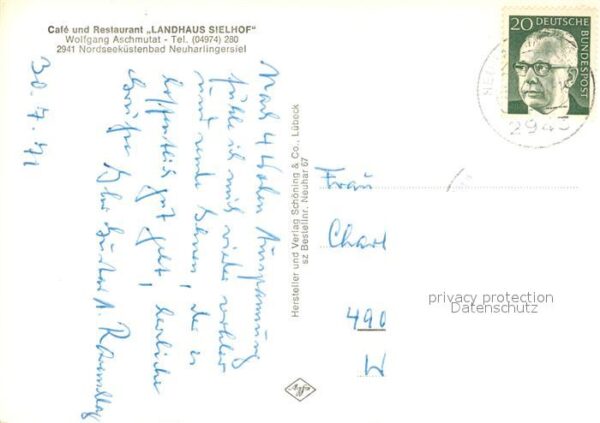 Café und Restaurant „LANDHAUS SIELHOF"
Wolfgang Aschmutat - Tel. (04974) 280
2941 Nordseeküstenbad Neuharlingersiel
20 DEUTSCHE
BUNDESPOST
294
30.7.71
Nach 4 Wochen Ausspannung
fühle ich mich wieder wohler
und sende Ihnen, der es
hoffentlich gut geht, herzliche
Grüße
Hersteller und Verlag Schöning & Co., Lübeck
sz Bestellnr. Neuhar 67
Frau
Charl
490
W
privacy protection
Datenschutz